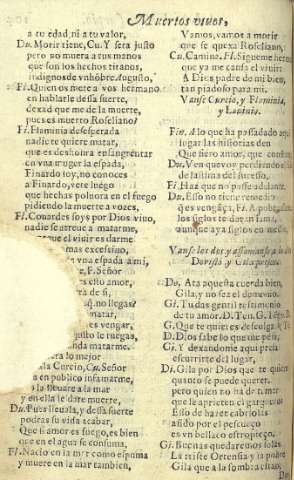 Muertos viuos,
a tu edad, ni a tu valor.
Du. Morir tiene, Cu. Y sera justo
pero no muera a tus manos
que son los hechos tiranos,
indignos de vn hõbre Augusto,
Fl. Quien os mete a vos hermano
en hablarle desta suerte,
dexad que me de la muerte,
pues es muerto Roseliano,
Fl. Flaminia desesperada
nadie te quiere matar,
que es deshonra ensangrentar
en vna muger la espada,
Finardo soy, no conoces
a Finardo, vete luego
que hechas poluora en el fuego
pidiendo la muerte a vozes,
Fl. Couardes soys por Dios viuo,
nadie se atreue a matarme,
que el visir es darme
mas excessiuo,
vna espada a mi,
F. Señor
esto amor,
ra de si,
no llegas?
matar,
es vengar,
justo te ruegas,
da matarme.
era lo mejor
la Curcio, Cu. Señor
a en publico infamarme,
a la lleuare a la mar
y en ella le dare muerte,
Du. Pues lleuala, y dessa suerte
podras su vida acabar,
Que si amor es fuego, es bien
que en el agua se consuma,
Fl. Nacio en la mar como espuma
y muere en la mar tambien,
Vamos, vamos a morir
que se quexa Roseliano,
Cu. Camina. Fl. Sigueme hermano
que ya me cansa el viuir
A Dios padre de mi bien,
tan piadoso para mi.
Vanse Curcio, y Flaminia,
y Lautaia.
Fin. A lo que ha passado aqui
lugar las historias den
Que fiero amor, que
Du. Ven que voy perdiendo
de lastima del sucesso,
Fi. Haz que no passe adelante.
Du. Esso no tiene remedio
q̃ es vengãça,
los siglos te den
aunque aya siglos en medio,
Vanse los dos y
Doristo y Gila
Do. Ata aquesta cuerda bien,
Gila, y no sea el demonio,
Gi. Tu das gentil testimonio
de tu amor. D. Ten. G.
G. Que te quieres descolgar
D. Dios sabe lo que me pesa,
Gi. Y dexandome aqui presa
escurrirte del lugar,
Di. Gila por Dios que te quiero
quanto se puede querer,
pero quien no ha de temer
que le aprieten el garguero
Esso de hazer cabriolas
asido por el pescueço
es vn bellaco estropieço,
Gi. Buenas quedaremos solas
La triste Ortensia, y la pobre
Gila que a la sombra
Do.